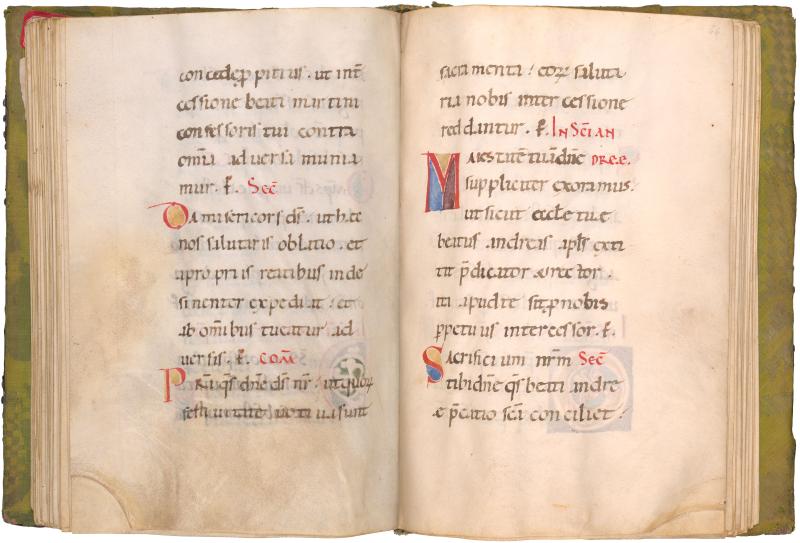 concede ꝓpitius · ut int̄
cessione beati martini
confessoris tui contra
om̄ia adversa munia
mur · ꝑ. Sec̄
Da misericors ds̄ · ut hec
nos salutaris oblatio · et
a propriis reatibus inde
sinenter expediat · et
ab om̄ibus tueatur ad
versis · ꝑ. Com̄
Pr̄a q̄s dn̄e ds̄ nr̄ · ut quoꝝ
festivitate votiva sunt
sacramenta · eoꝝ saluta
ria nobis intercessione
reddantur · ꝑ. In Sc̄i An
Maiestatē tuā dn̄e dree
suppliciter exoramus ·
ut sicut eccl̄e tue
beatus andreas apl̄s exti
tit p̄dicator & rector ·
ita apud te sit ꝓ nobis
ꝑpetuus intercessor · ꝑ.
Sacrificium nr̄m Sec̄
tibi dn̄e q̄s beati andre
e p̄catio sc̄a conciliet ·